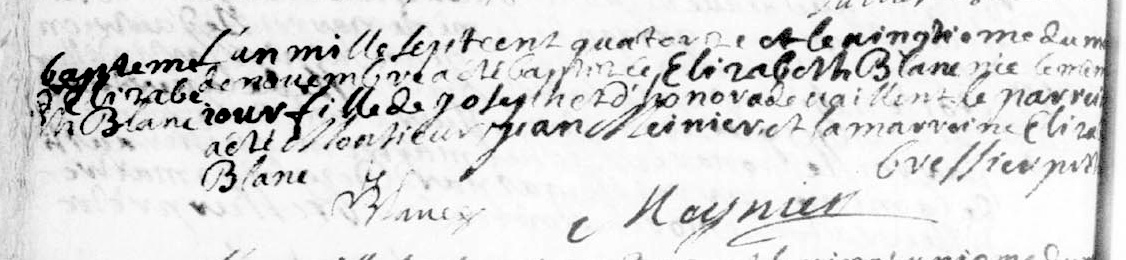 bapteme
d'Elizabe
th Blanc
L'an mille sept cent quatorze et le vingtiome du m
de novembre a ète baptizèe Elizabeth Blanc nèe le mem
iour fille de Joseph et d'honorade vaillent le parrei
a ète Monsieur Jean Meinier et la marreine Eliza
Blanc
Bressier ptr
Blanc
Meynier